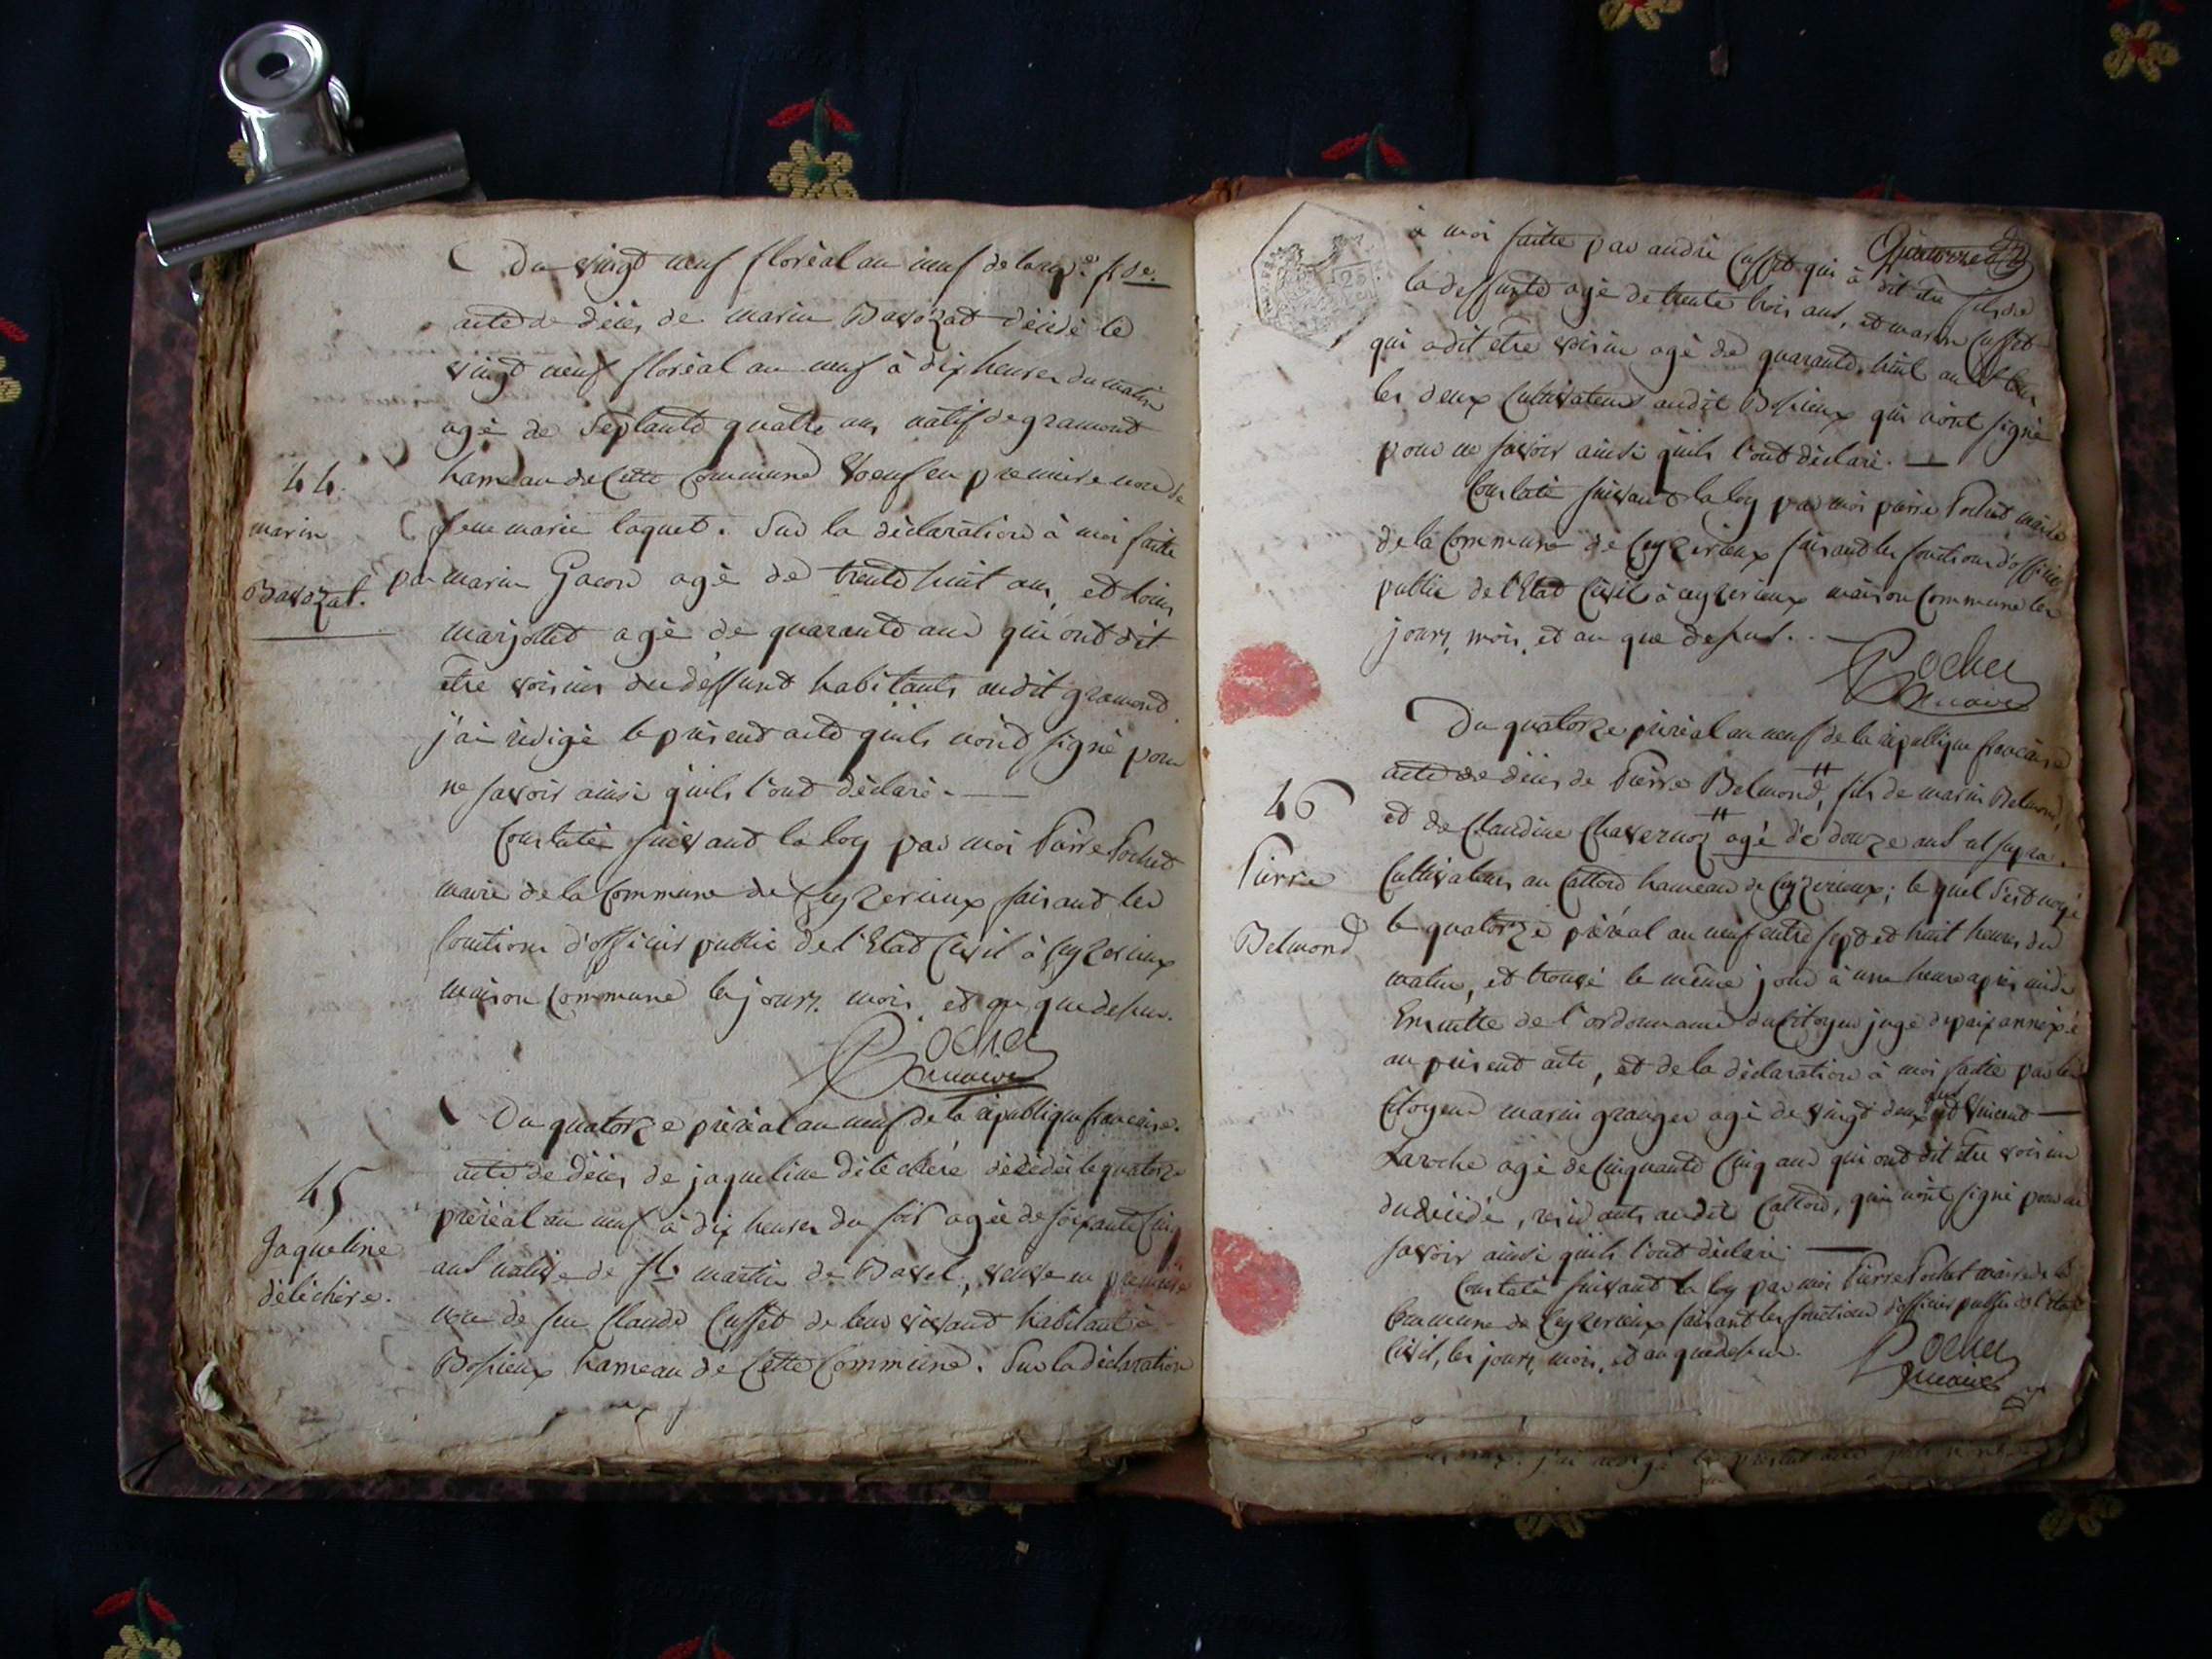 Du vingt neuf floréal an neuf de la rep.e fse.
acte de décès de marin Bavozat décédé le
vingt neuf floréal an neuf à dix heures du matin
agé de Septante quatre ans natif de gramont
hameau de Cette Commune Voeuf en premiere noce de
44.
marin
Bavozat.
feue marie laquet. Sur la déclaration à moi faite
par marin Gacon agé de trente huit ans, et Louis
marjollet agé de quarante ans qui ont dit
etre voisins du deffunt habitants audit gramond.
j'ai redigé le présent acte quils n'ont signé pour
ne savoir ainsi quils l'ont déclaré. —
Constaté suivant la loy par moi Pierre Pochet
maire de la Commune de Ceyzerieux faisant les
fonctions d'officier public de l'Etat Civil à Ceyzerieux
maison Commune les jours, mois, et an que dessus.
Pochet
maire
Du quatorze préréal an neuf de la république francaise.
45
Jaqueline
déléchére.
acte de décès de jaqueline déléchére décédée le quatorze
préréal an neuf à dix heures du soir agée de soixante cinq
ans native de St. martin de Bavel, veuve en premiere
noce de feu Claude Cusset de leur vivant habitant à
Bossieux hameau de Cette Commune. Sur la déclaration
à moi faitte par andré Cussit qui à dit etre fils de
la deffunte agé de trente trois ans, et marin Cussit
qui a dit etre voisin agé de quarante huit ans
les deux Cultivateurs audit Bossieux qui n'ont signé
pour ne savoir ainsi quils l'ont déclaré. —
Constaté suivant la loy par moi pierre Pochet maire
de la Commune de Ceyzerieux faisant les fonctions d'officier
public de l'Etat Civil à Ceyzerieux maison Commune les
jours, mois, et an que dessus..
Pochet
maire
Du quatorze préréal an neuf de la république francaise
46
Pierre
Belmond
acte de décès de Pierre Belmond, fils de marin Belmond,
et de Claudine Chavernoz agé de douze ans ut supra.
Cultivateur au Cattord hameau de Ceyzerieux; le quel s'est noyé
le quatorze préréal an neuf entre sept et huit heures du
matin, et trouvé le même jour à une heure après midi
Ensuitte de l'ordonnance du Citoyen juge de paix annexé
au présent acte, et de la déclaration à moi faitte par les
Citoyens marin granger agé de vingt deux ans et Vincent —
Laroche agé de Cinquante Cinq ans qui ont dit etre voisins
du décédé, résidants audit Cattord, qui n'ont signé pour ne
savoir ainsi quils l'ont déclaré. —
Constaté suivant la loy par moi Pierre Pochet maire de la
Commune de Ceyzerieux faisant les fonctions d'officier public de l'Etat
Civil, les jours, mois, et an que dessus.
Pochet
maire